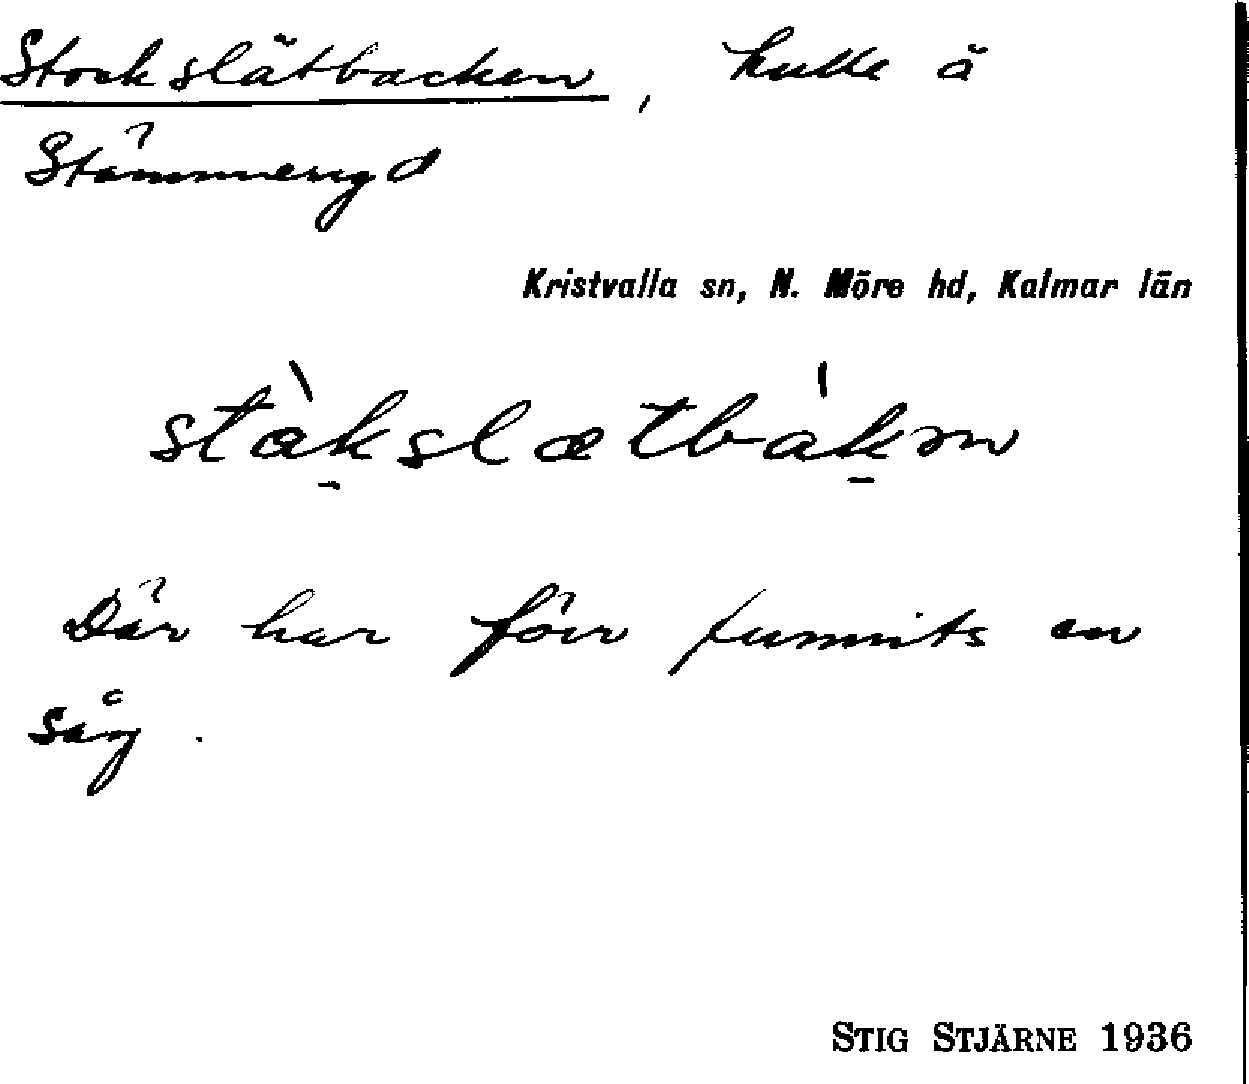 Stockslätbacken, kulle å
Stämmeryd
Kristvalla sn, N. Möre hd, Kalmar län
Där har förr funnits en
såg.
STIG STJÄRNE 1936